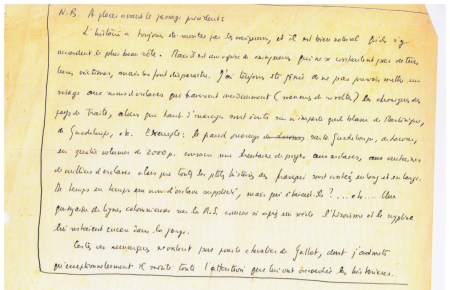 N.B. A placer avant le passage précédent
L'histoire a toujours été montée par les vainqueurs, et il est bien naturel qu'ils s'y
accordent le plus beau rôle. Mais il est une espèce de vainqueurs qui ne se contentent pas de tuer
leurs victimes, mais les font disparaître. J'ai toujours été gêné de ne pas pouvoir mettre un
visage aux noms d'esclaves que harcèlent (meneurs de révoltes) les chroniques des
pays de Traite, alors que tant d'ouvrages sont écrits sur n'importe quel blanc de Martinique,
de Guadeloupe, etc. Exemple : le grand ouvrage sur la Guadeloupe,
en quatre volumes de 2000 p. consacre une trentaine de pages aux esclaves, aux centaines
de milliers d'esclaves alors que toutes les petites histoires des français sont contées en long et en large.
De temps en temps un nom d'esclave supplicié, mais qui étaient-ils ? ... etc.... Une
de lignes sur la R.S. après un siècle l'héroïsme et le supplice
lui restaient encore dans la gorge.
Certes ces remarques n'ont pas pour le chevalier de Gallot, dont j'admets
qu'exceptionnellement il mérite toute l'attention que lui ont accordée les historiens.